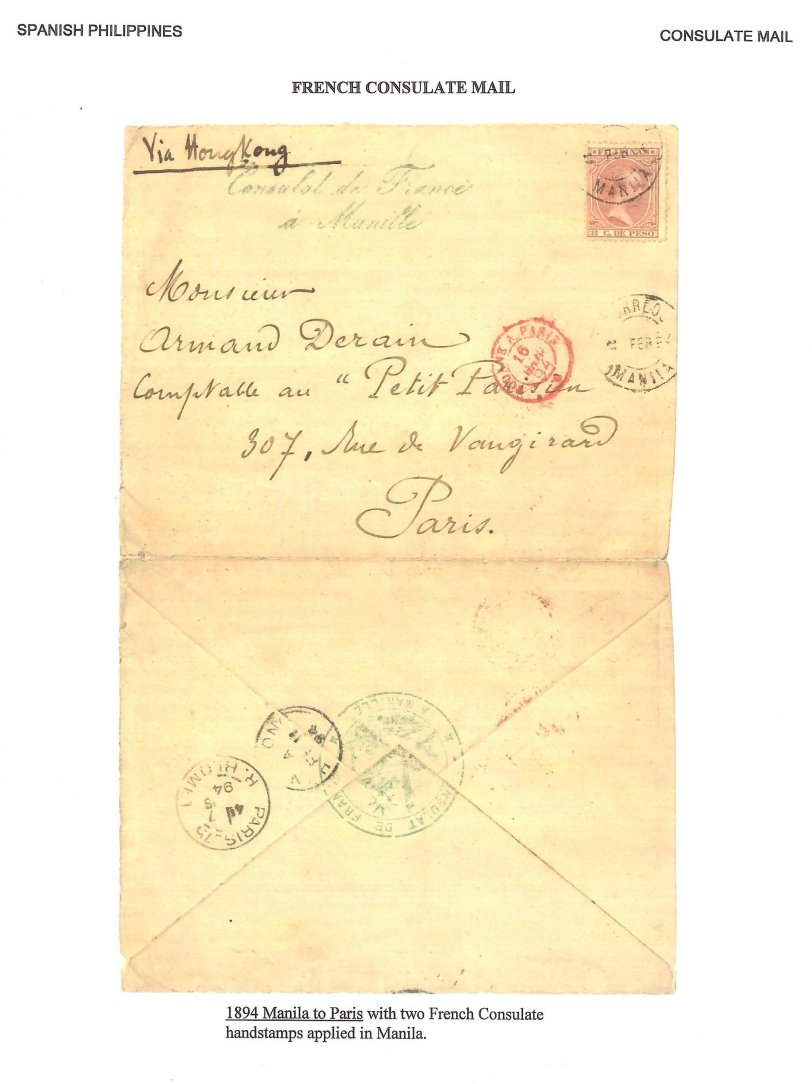 SPANISH PHILIPPINES
CONSULATE MAIL
FRENCH CONSULATE MAIL
Via HongKong
Consulat de France
à Manille
FILIPINAS
MANILA
8 C. DE PESO
Monsieur
Armand Derain
Comptable au "Petit Parisien
307, Rue de Vaugirard
Paris.
A PARIS
16
94
FEB 94
MANILA
A MANILLE
DE
94
R. BLOMET
94
PARIS-15
1894 Manila to Paris with two French Consulate
handstamps applied in Manila.